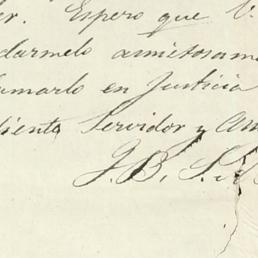 er. Espero que V.
darmelo amistosame
lamarlo en Justicia
diente Servidor y Am
J. B.